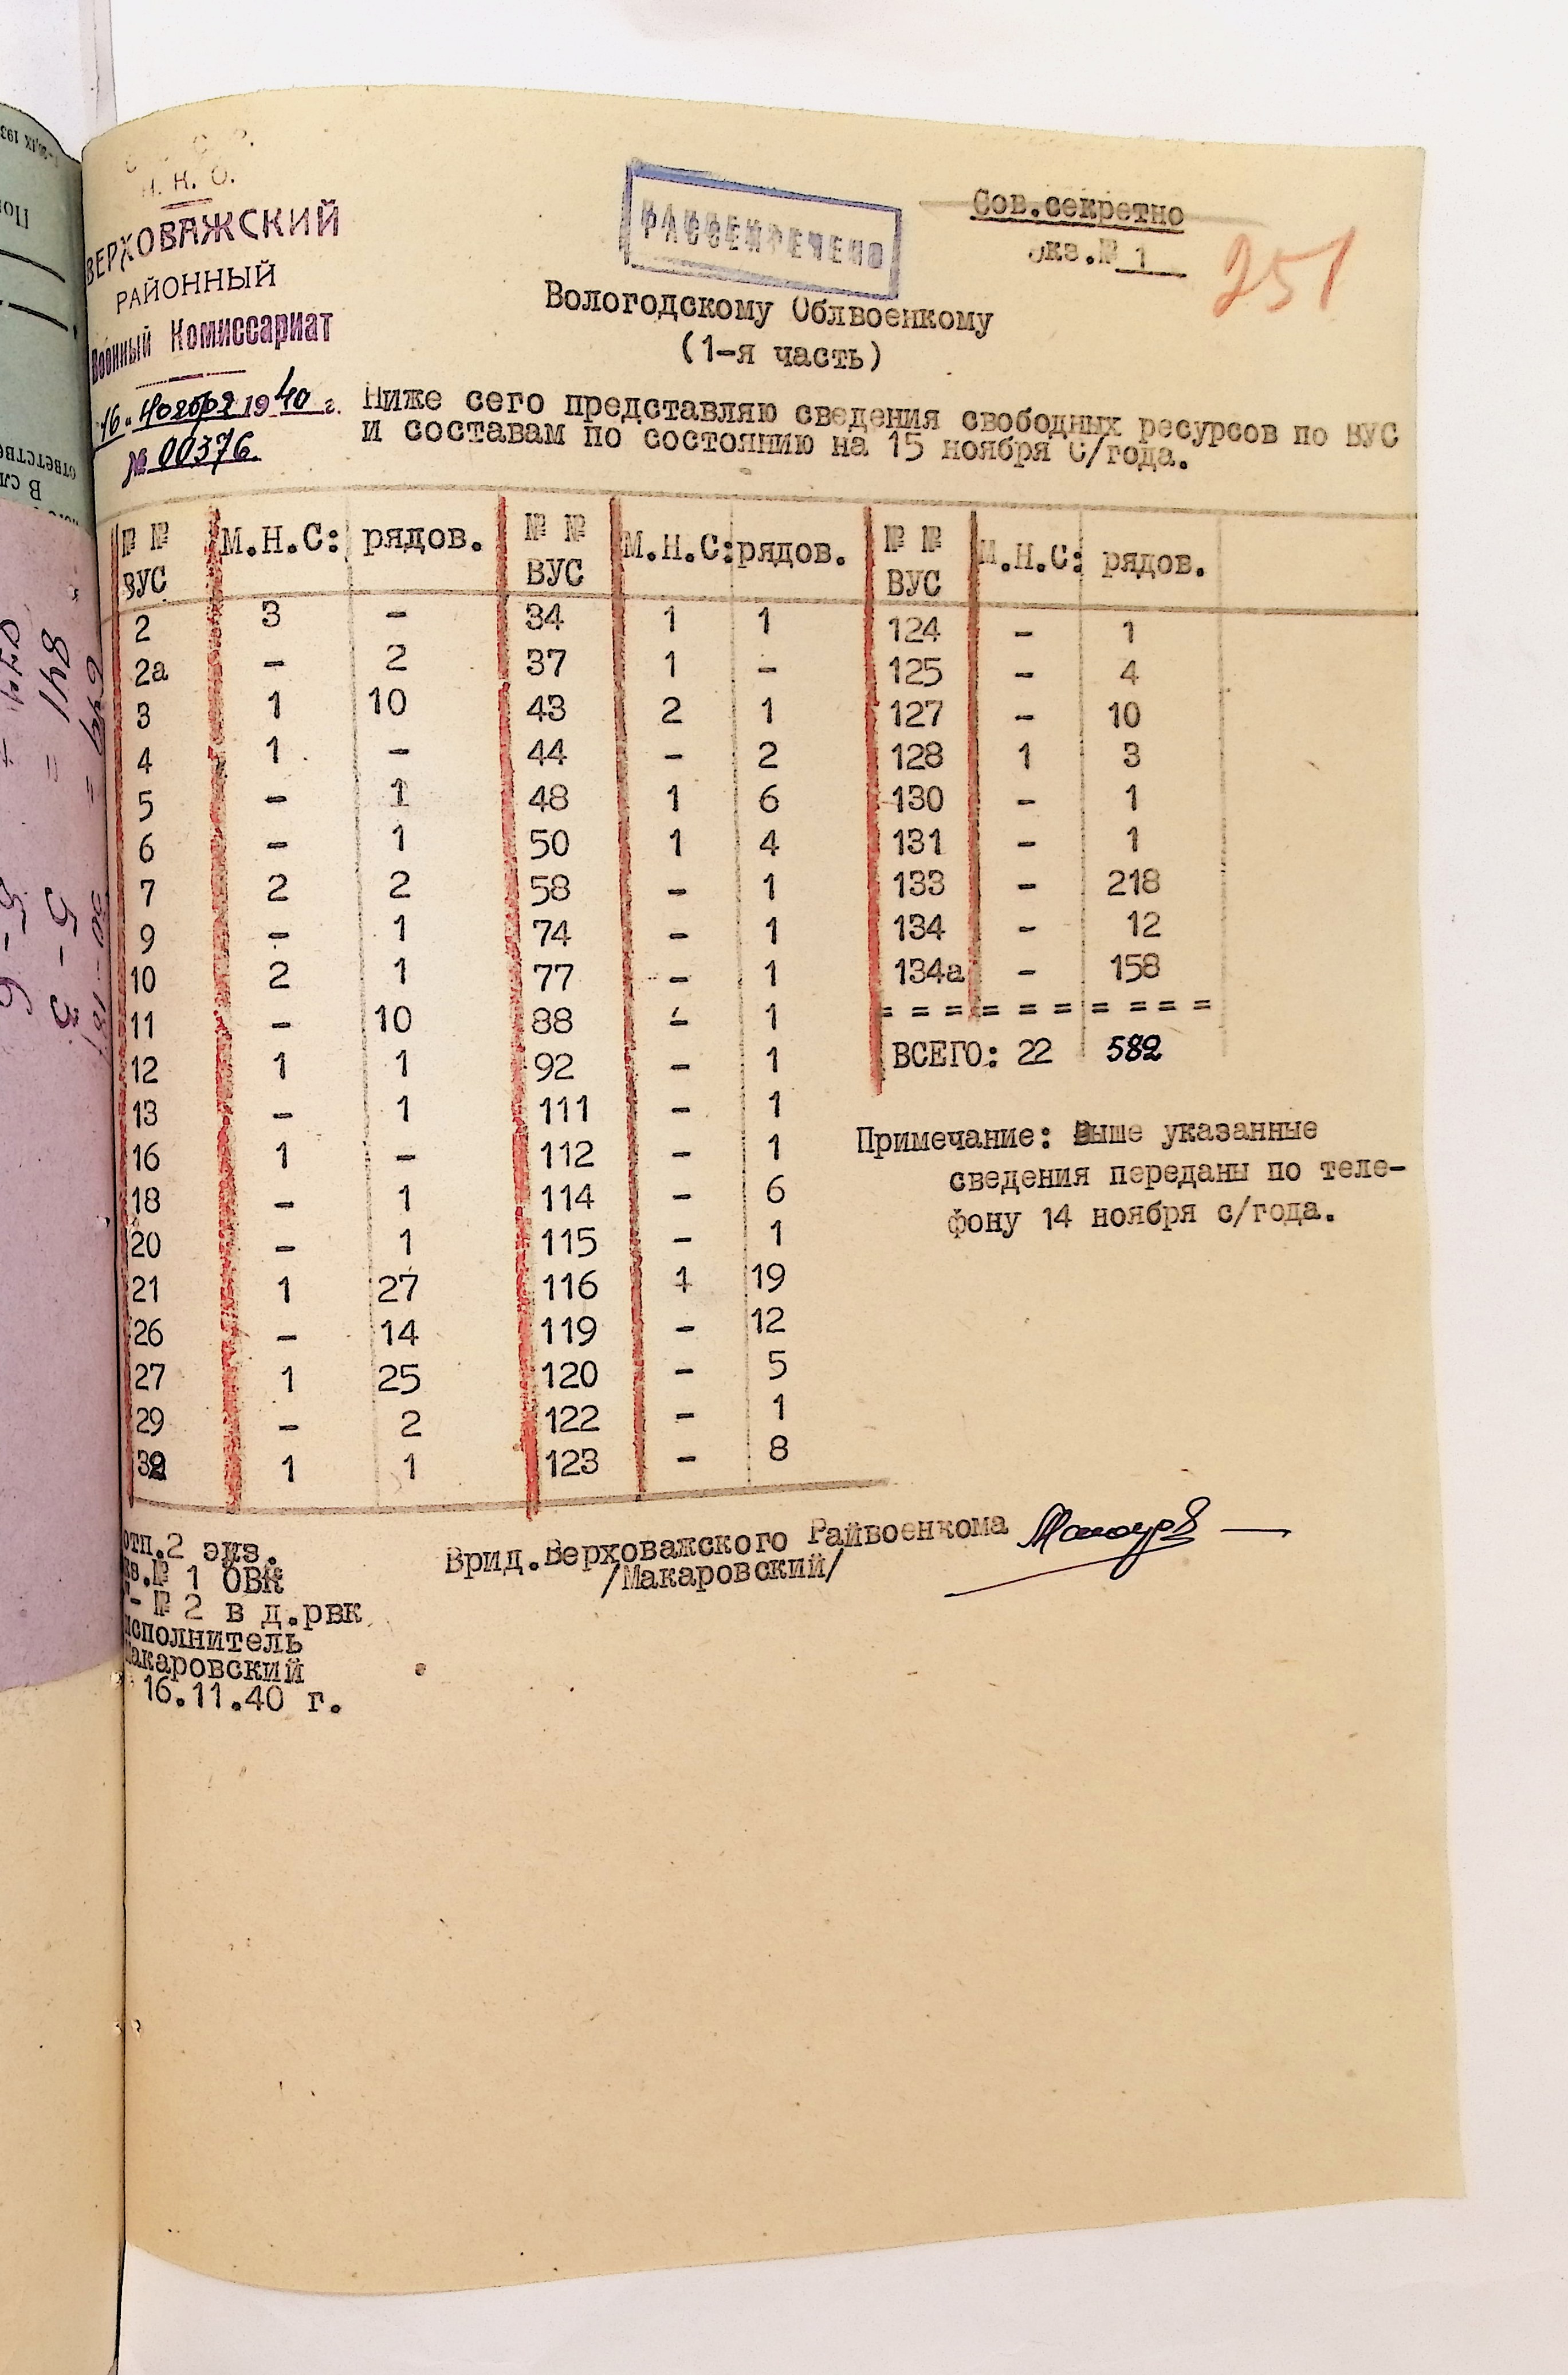 Н. К. О.
ВЕРХОВАЖСКИЙ
РАЙОННЫЙ
Военный Комиссариат
"16" Ноября 1940 г.
№ 00376
РАССЕКРЕЧЕНО
Сов.секретно
экз.№ 1
251
Вологодскому Облвоенкому
(1-я часть)
Ниже сего представляю сведения свободных ресурсов по ВУС
и составам по состоянию на 15 ноября С/года.
№ № ВУС М.Н.С: рядов. № № ВУС М.Н.С: рядов. № № ВУС М.Н.С: рядов.
2 3 - 34 1 1 124 - 1
2а - 2 37 1 - 125 - 4
3 1 10 43 2 1 127 - 10
4 1 - 44 - 2 128 1 3
5 - 1 48 1 6 130 - 1
6 - 1 50 1 4 131 - 1
7 2 2 58 - 1 133 - 218
9 - 1 74 - 1 134 - 12
10 2 1 77 - 1 134а - 158
11 - 10 88 - 1 = = = = = = = = = =
12 1 1 92 - 1 ВСЕГО: 22 582
13 - 1 111 - 1
16 1 - 112 - 1
18 - 1 114 - 6
20 - 1 115 - 1
21 1 27 116 1 19
26 - 14 119 - 12
27 1 25 120 - 5
29 - 2 122 - 1
32 1 1 123 - 8
Примечание: Выше указанные
сведения переданы по теле-
фону 14 ноября с/года.
Врид.Верховажского Райвоенкома
/Макаровский/
отп.2 экз.
кз.№ 1 ОВК
"- № 2 в д.рвк
исполнитель
Макаровский
16.11.40 г.